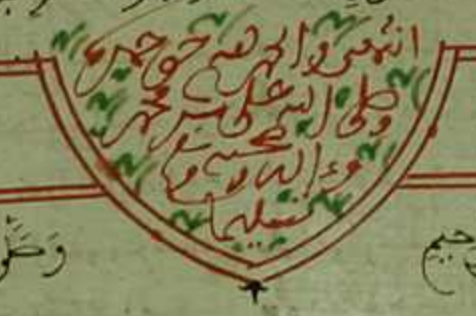 انتهى والحمد لله حق حمده
وصلى الله على سيدنا محمد
وءاله وصحبه وسلم
تسليما